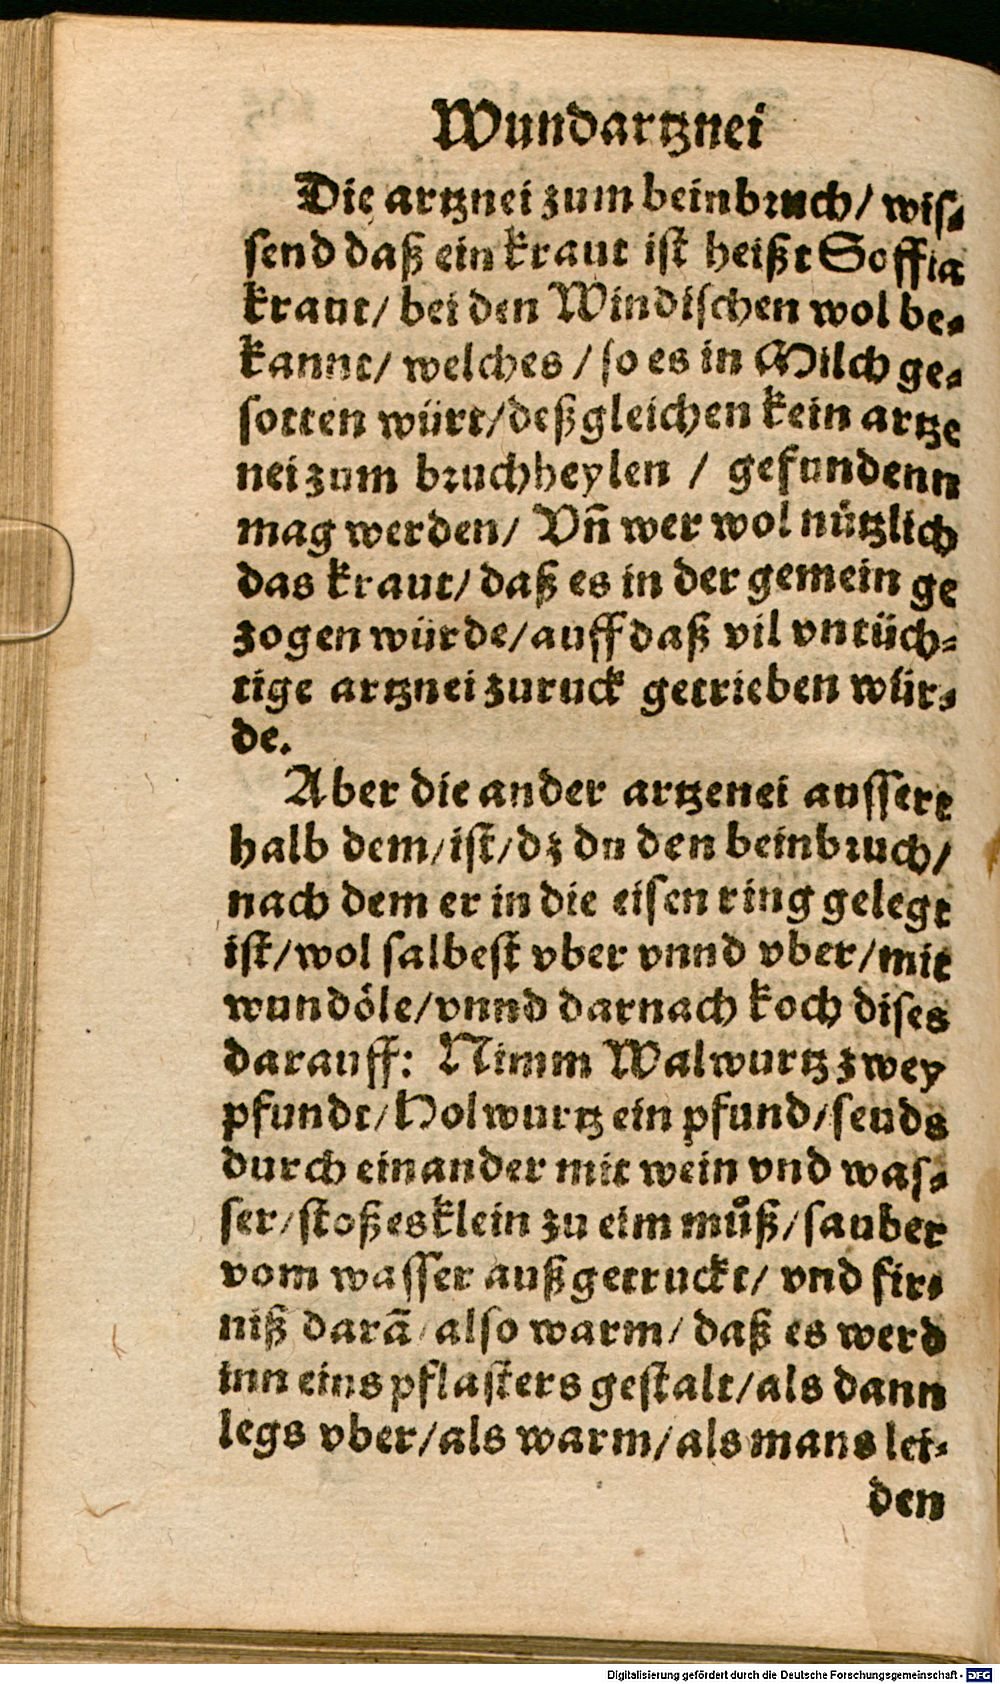 Wundartznei
Die artznei zum beinbruch/ wis-
send daß ein kraut ist heißt Soffia
kraut/ bei den Windischen wol be-
kannt/ welches / so es in Milch ge-
sotten würt/deßgleichen kein artze
nei zum bruchheylen / gefundenn
mag werden/ Vñ wer wol nützlich
das kraut/ daß es in der gemein ge
zogen würde/auff daß vil vntüch-
tige artznei zuruck getrieben wür-
de.
Aber die ander artzenei aussert
halb dem/ist/dz du den beinbruch/
nach dem er in die eisen ring gelegt
ist/wol salbest vber vnnd vber/mit
wundöle/vnnd darnach koch dises
darauff: Nimm Walwurtz zwey
pfundt/Holwurtz ein pfund/seuds
durch einander mit wein vnd was-
ser/stoß es klein zu eim muͦß/sauber
vom wasser außgetruckt/ vnd fir-
niß darã/also warm/ daß es werd
inn eins pflasters gestalt/als dann
legs vber/als warm/als mans lei-
den
Digitalisierung gefördert durch die Deutsche Forschungsgemeinschaft - DFG